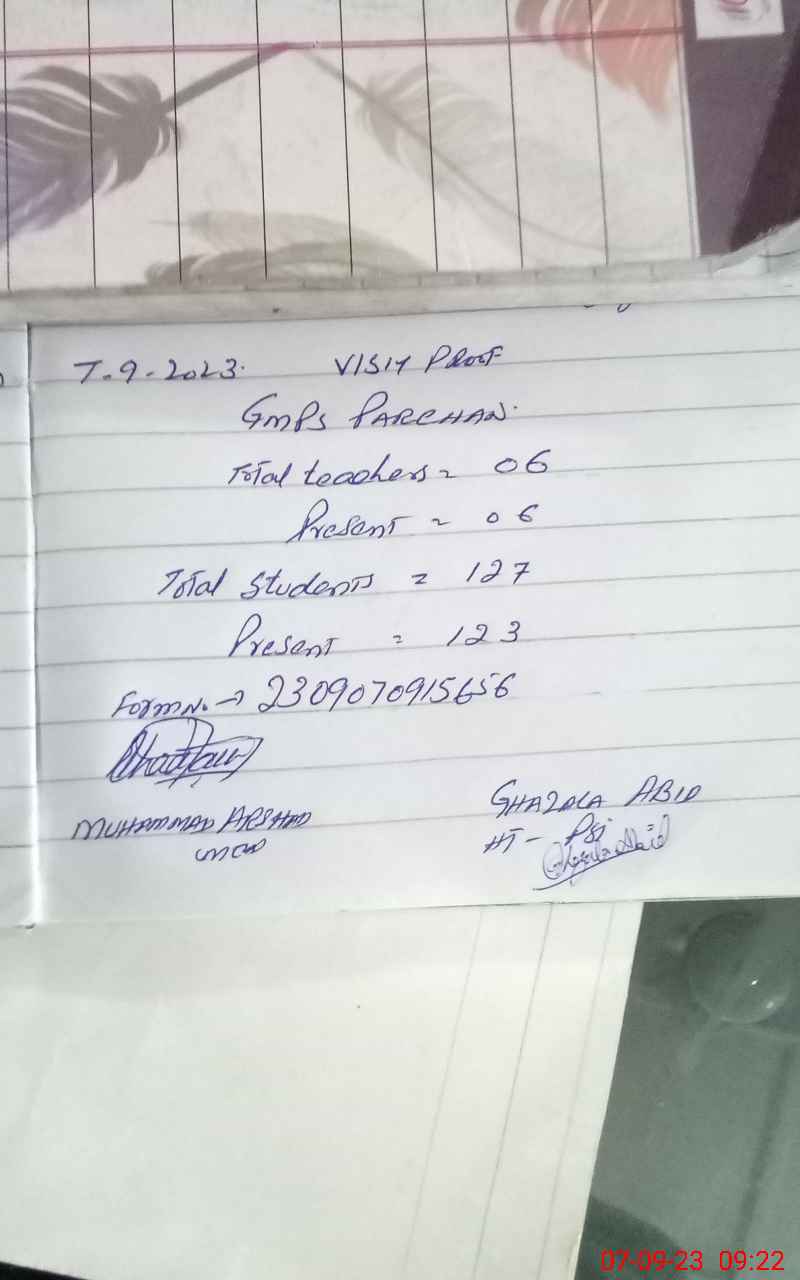 7.9.2023. VISIT PROOF
GMPS PARCHAN.
Total teachers = 06
Present = 06
Total Students = 127
Present = 123
Form No. → 2309070915656
MUHAMMAD ARSHAD
GHAZALA ABID
HT - PSI
07-09-23 09:22